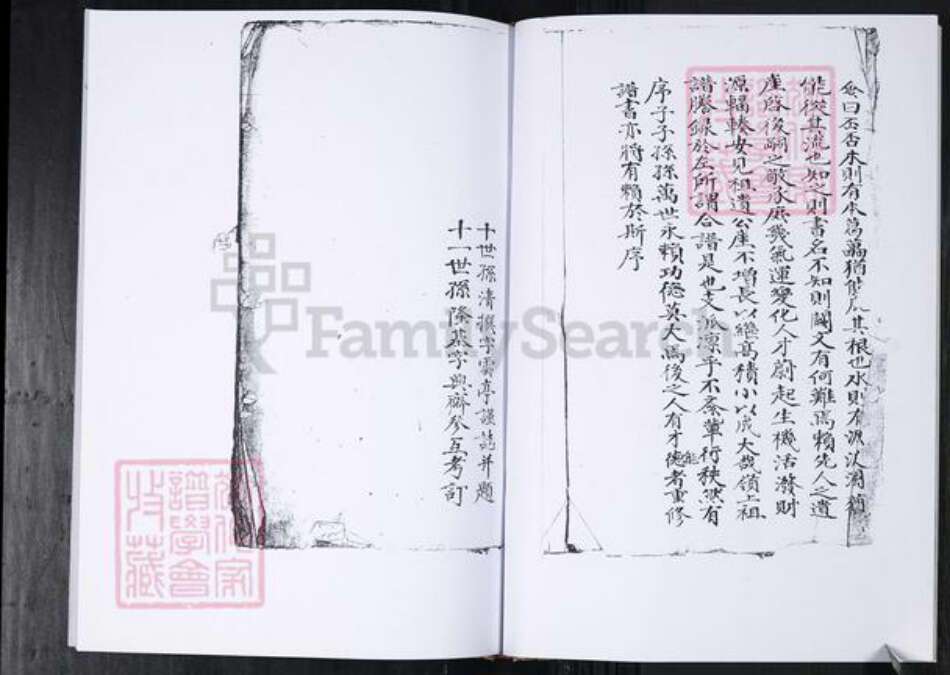 僉曰否否木則有本蒂萬猶能尋其根也水則有源汲溯猶
能從其流也知之則書名不知則闕文有何難焉賴先人之遺
產啓後嗣之敬承庶幾氣運變化人才蔚起生機活潑財
源輻輳安見祖遺公產不增長以繼高積小以成大哉嶺上祖
譜謄錄於左所謂合譜是也支派凜乎不紊輩行秩然有
序子子孫孫萬世永賴功德莫大焉後之人有才德者重修
能
譜書亦將有賴於斯序
十世孫清撰字雲亭謹誌并題
十一世孫隆基字興齋參互考訂
FamilySearch
譜學會
收藏